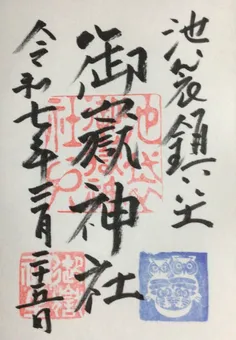 池袋鎮守
御嶽神社
令和七年三月二十五日